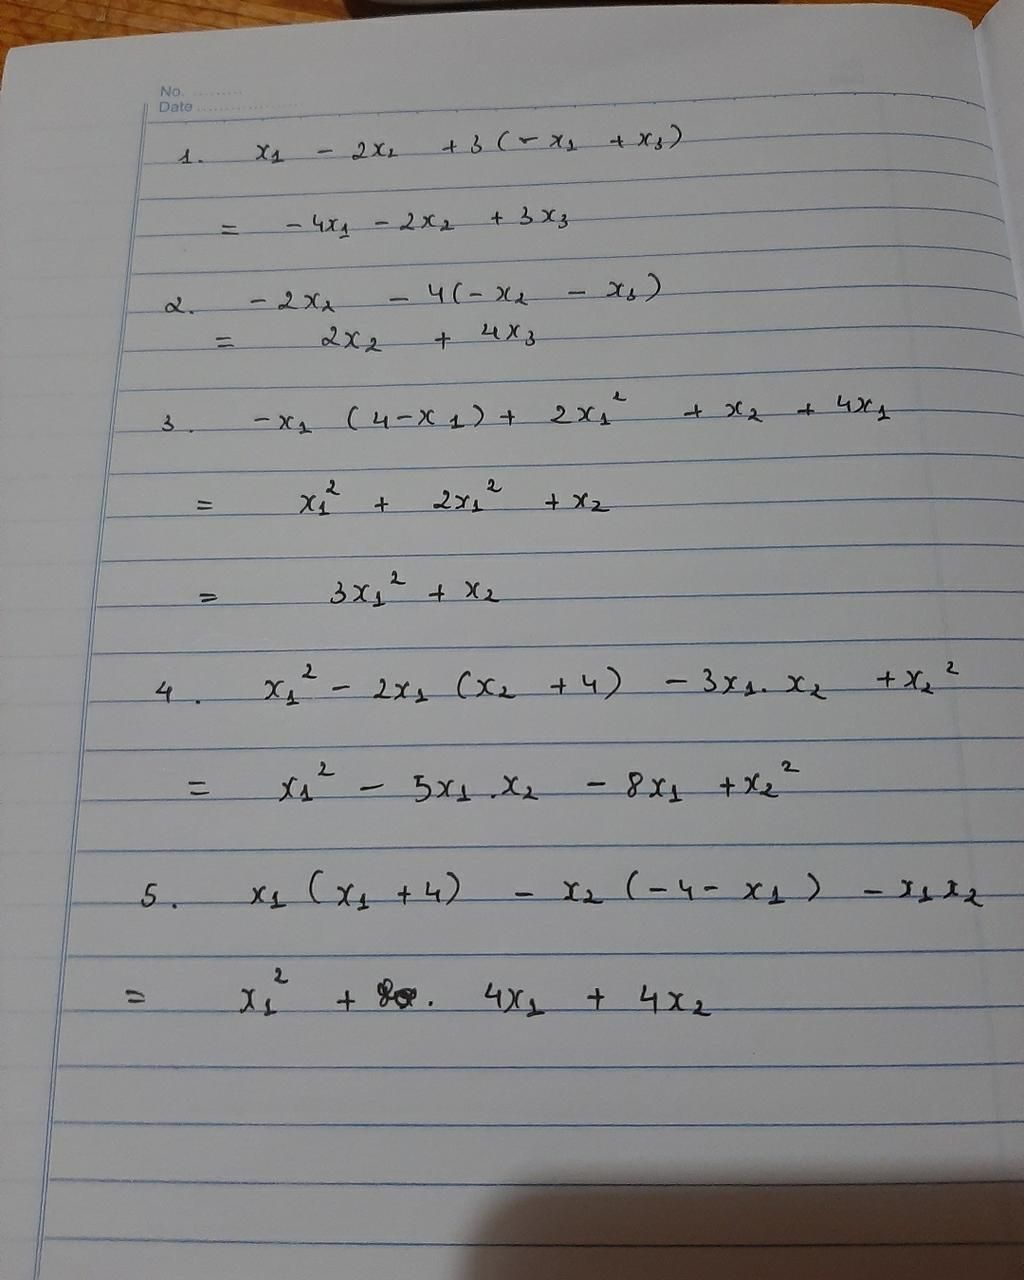 No. ..........
Date ......................
1. x₁ - 2x₂ + 3(-x₁ + x₃)
= -4x₁ - 2x₂ + 3x₃
2. -2x₂ - 4(-x₂ - x₃)
= 2x₂ + 4x₃
3. -x₁ (4-x₁) + 2x₁² + x₂ + 4x₁
= x₁² + 2x₁² + x₂
= 3x₁² + x₂
4. x₁² - 2x₁ (x₂ + 4) - 3x₁.x₂ + x₂²
= x₁² - 5x₁.x₂ - 8x₁ + x₂²
5. x₁ (x₁ + 4) - x₂ (-4 - x₁) - x₁x₂
= x₁² + 4x₁ + 4x₂